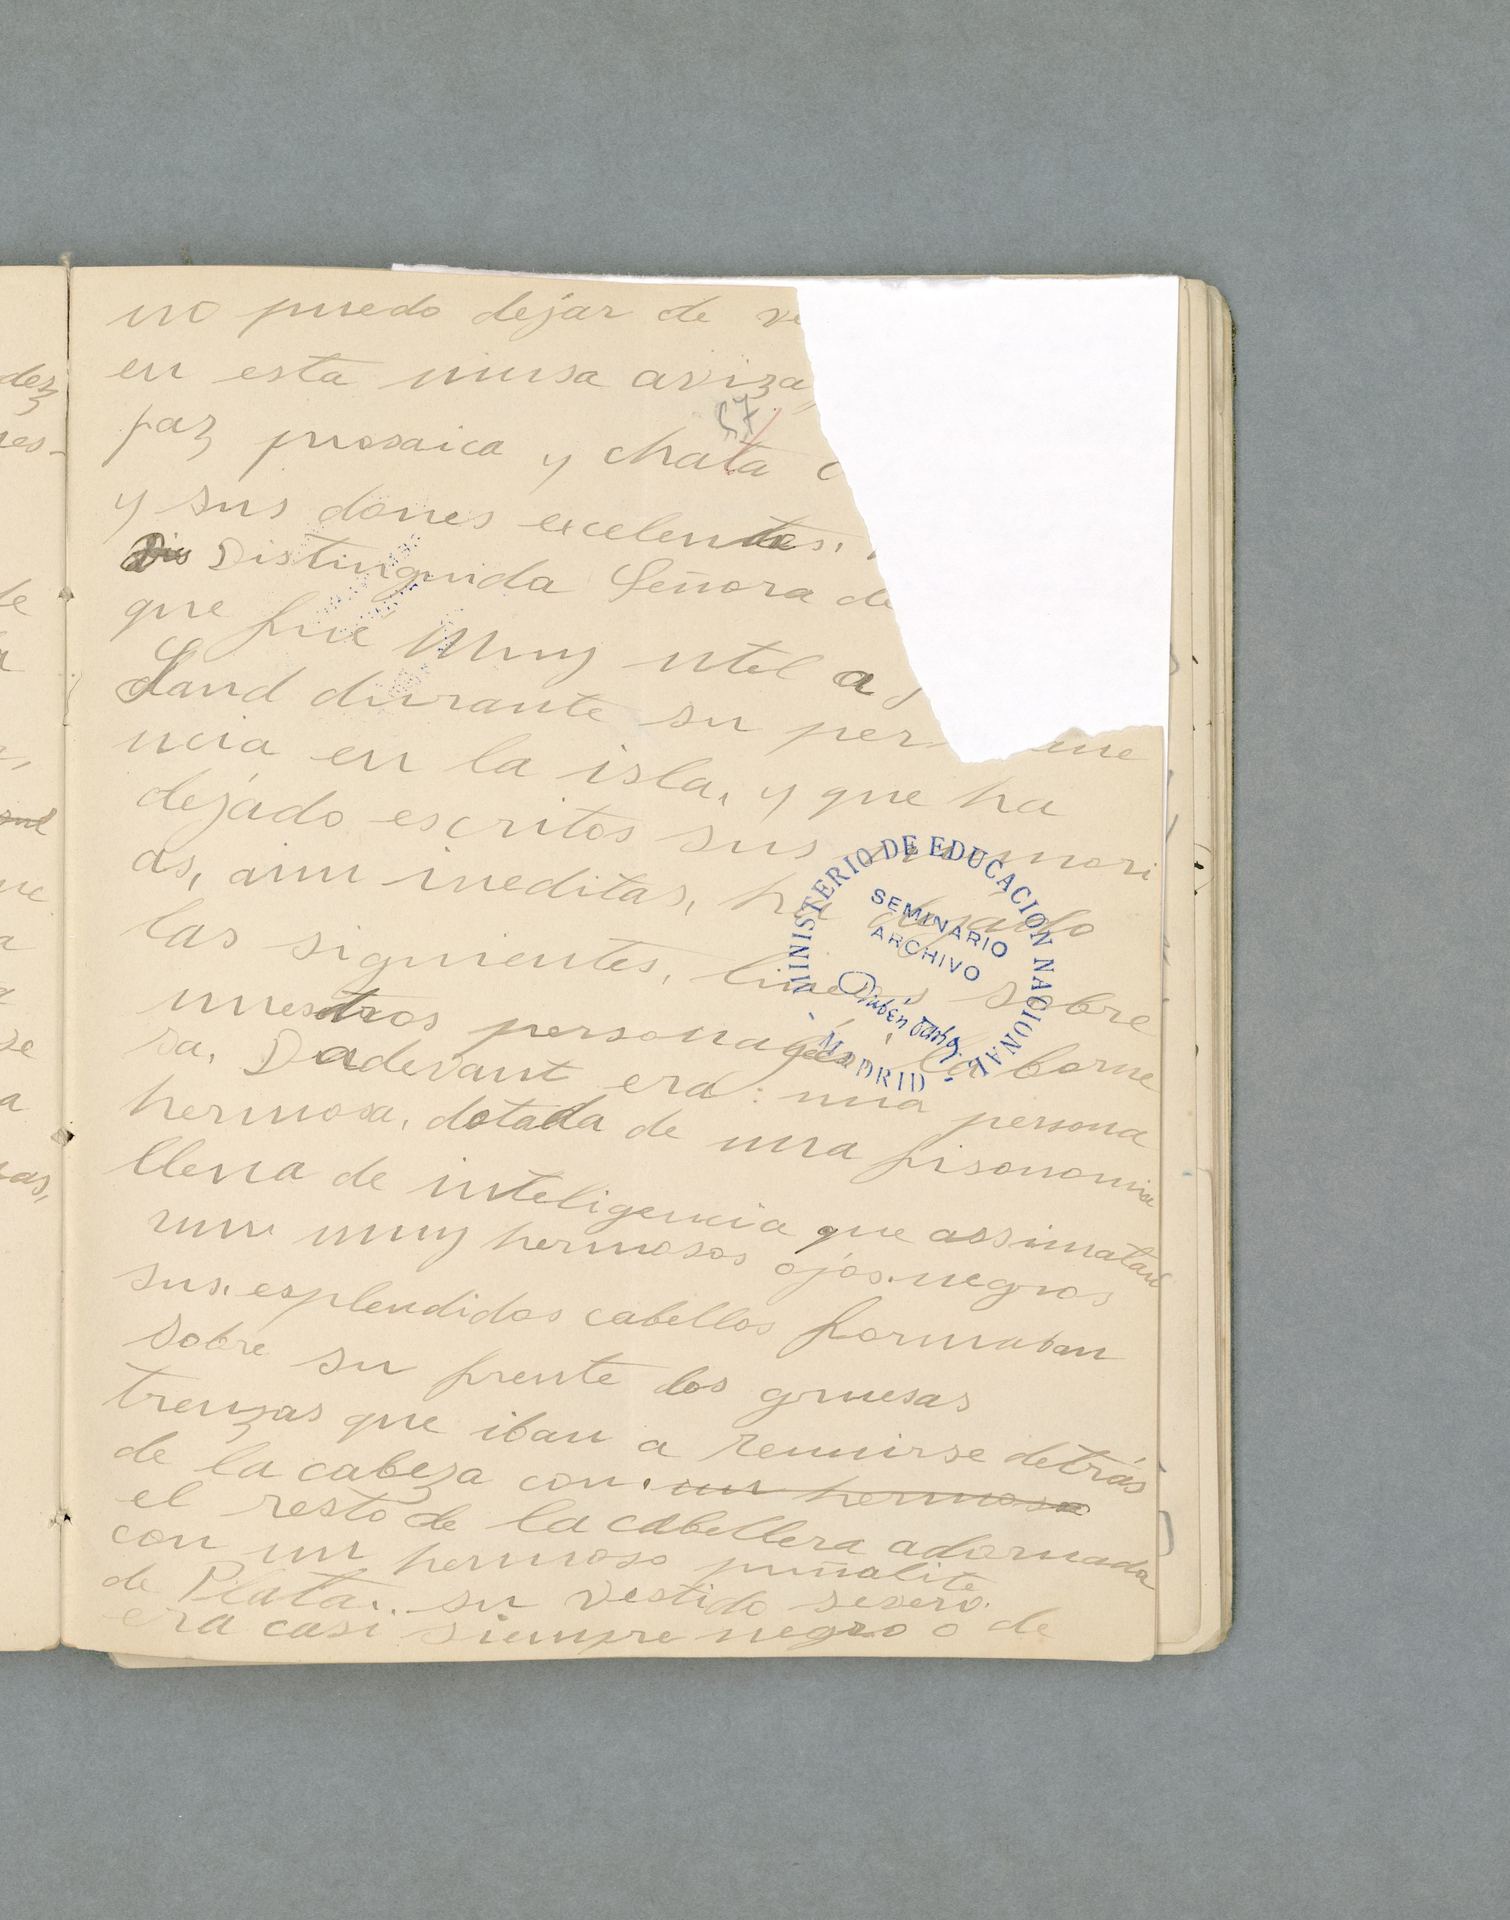 no puedo dejar de ve
en esta musa aviza
paz prosaica y chata
57
y sus dones excelentes.
Dis Distinguida Señora de
que fué Muy util a
Sand durante su per ane
ncia en la isla, y que ha
dejádo escritos sus memori
as, aun ineditas, ha dejádo
las siguientes, lineas sobre
nuestros personages, la barne
sa. Dudevant era: una persona
hermosa, dotada de una fisonomia
llena de inteligencia que assimatan
unv muy hermosos ojos. negros
sus. esplendidos cabellos formaban
sobre su frente dos gruesas
trenzas que iban a reunirse detrás
de la cabeza con. un hermoso
el resto de la cabellera adornada
con un hermoso puñalite
de Plata.. su vestido severo.
era casi siempre negro o de
MINISTERIO DE EDUCACION NACIONAL
SEMINARIO
ARCHIVO
Rubén Darío
- MADRID -
dez
nes-